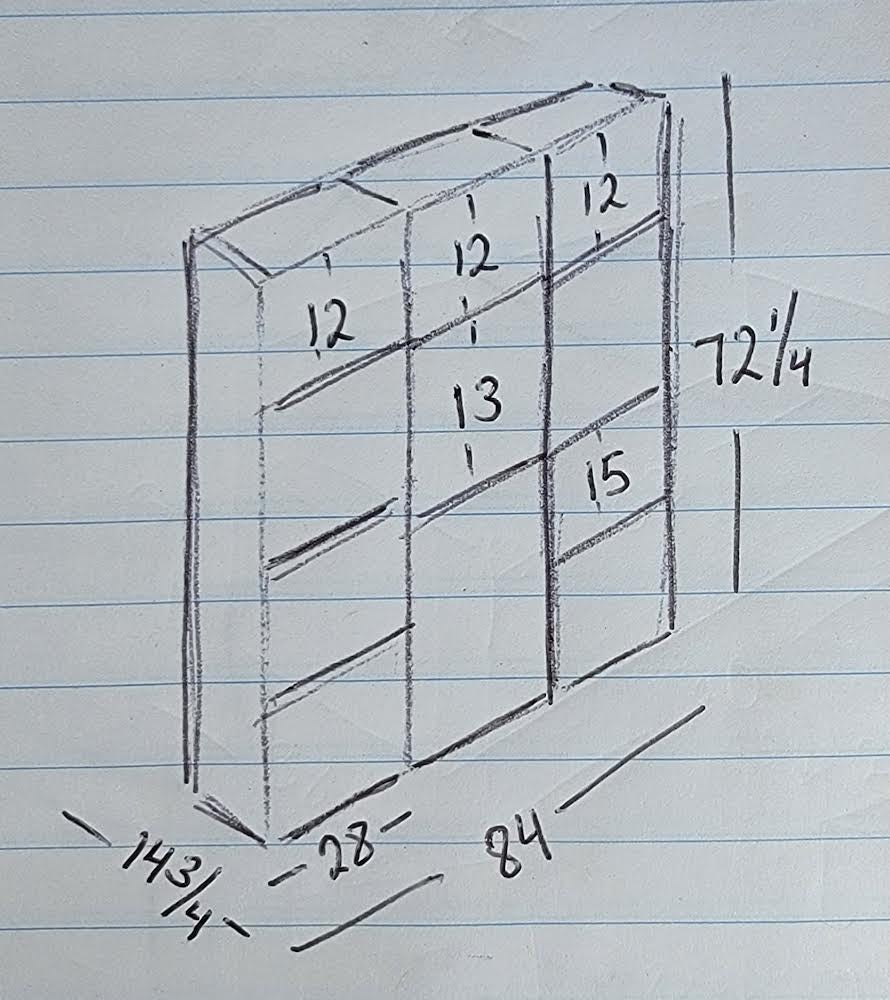 12
12
12
72 1/4
13
15
28
84
14 3/4